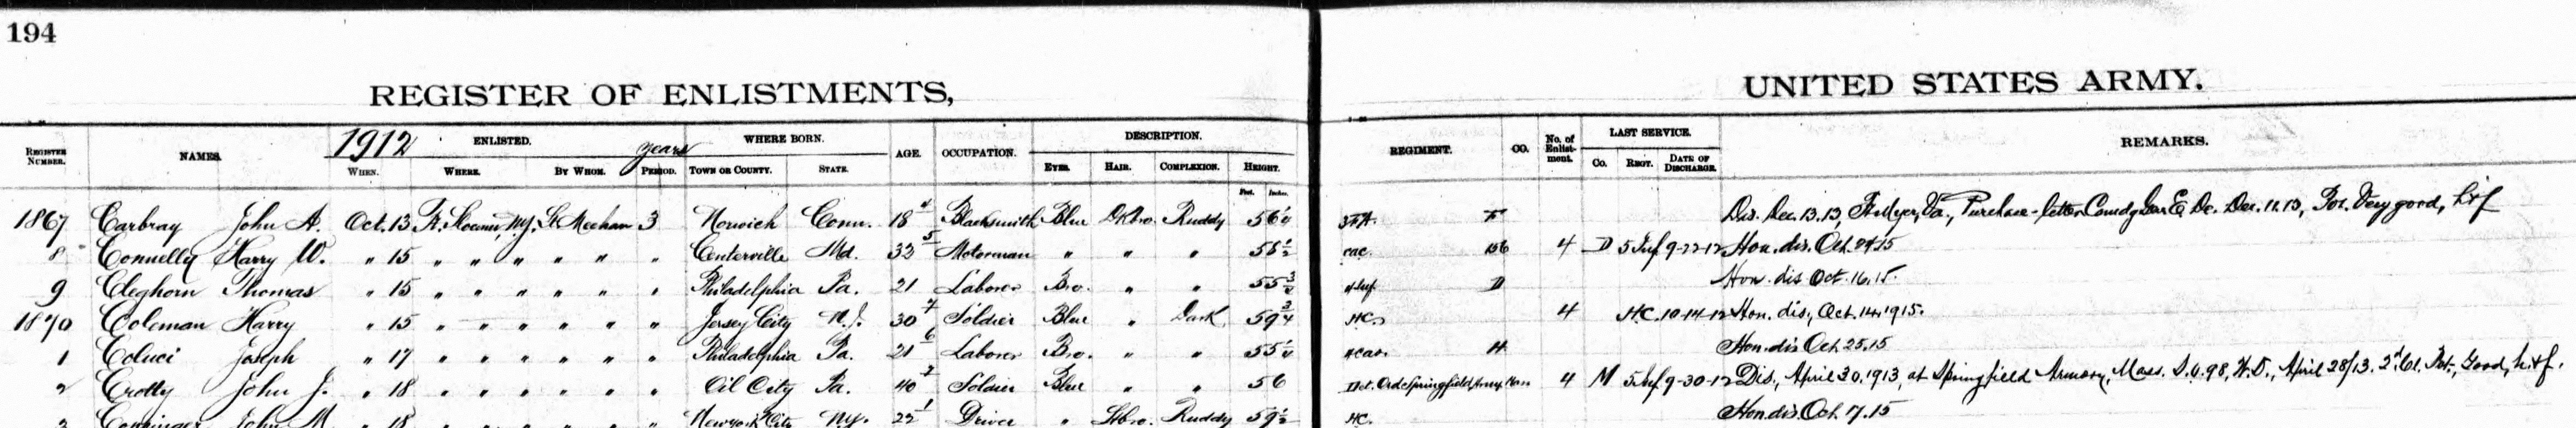 194
REGISTER OF ENLISTMENTS, UNITED STATES ARMY.
REGISTER NUMBER. NAMES. 1912 ENLISTED. WHEN. WHERE. BY WHOM. years PERIOD. WHERE BORN. TOWN OR COUNTY. STATE. AGE. OCCUPATION. DESCRIPTION. EYES. HAIR. COMPLEXION. HEIGHT. Feet. Inches. REGIMENT. CO. No. of Enlistment. LAST SERVICE. Co. REGT. DATE OF DISCHARGE. REMARKS.
1867 Carbray John A. Oct. 13 Ft. Slocum, N.Y. Lt. Meehan 3 Norwich Conn. 18 Blacksmith Blue Dk Bro. Ruddy 5 6 1/4 3 FA. F Dis. Dec. 13, 13, Ft. Myer, Va., Purchase - letter Dec. 11. 13, Pvt. Very good, h & f
8 Connelly Harry W. " 15 " " " " " " Centerville Md. 33 5 Motorman " " " 5 5 1/2 CAC. 156 4 D 5 Inf 9-22-12 Hon. dis. Oct. 24. 15
9 Cleghorn Thomas " 15 " " " " " " Philadelphia Pa. 21 Laborer Bro. " " 5 5 3/4 4 Inf. D Hon. dis Oct. 16, 15.
1870 Coleman Harry " 15 " " " " " " Jersey City N.J. 30 7 Soldier Blue " Dark 5 9 3/4 HC. 4 H.C. 10-14-12 Hon. dis., Oct. 14, 1915.
1 Coluci Joseph " 17 " " " " " " Philadelphia Pa. 21 6 Laborer Bro. " " 5 5 1/4 4 Cav. H Hon. dis Oct. 25. 15
2 Crotty John J. " 18 " " " " " " Oil City Pa. 40 2 Soldier Blue " " 5 6 Det. Ord. Springfield Army Mass 4 M 5 Inf 9-30-12 Dis., April 30, 1913, at Springfield Armory, Mass. S.O. 98, W.D., April 28/13. 2nd Cl. Pvt., Good, h & f.
3 John M. " 18 " " " " " " New York City N.Y. 22 1 Driver " Lt bro. Ruddy 5 9 1/2 HC. Hon. dis. Oct. 17. 15